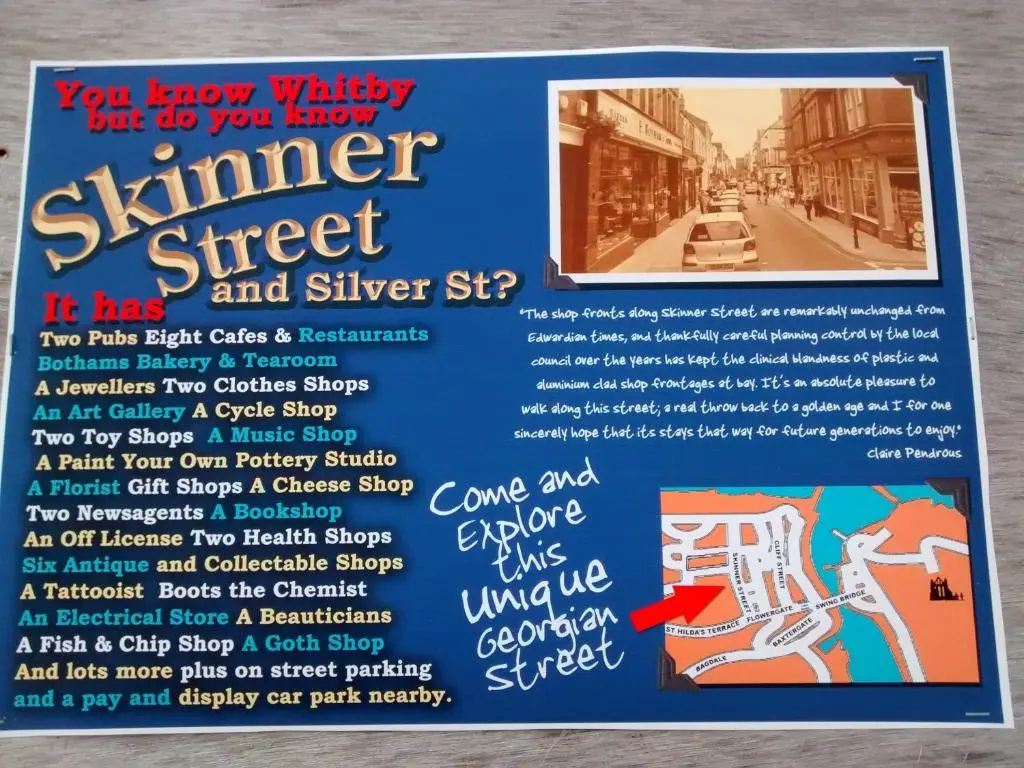 You know Whitby
but do you know
Skinner
Street
and Silver St?
It has
Two Pubs Eight Cafes & Restaurants
Bothams Bakery & Tearoom
A Jewellers Two Clothes Shops
An Art Gallery A Cycle Shop
Two Toy Shops A Music Shop
A Paint Your Own Pottery Studio
A Florist Gift Shops A Cheese Shop
Two Newsagents A Bookshop
An Off License Two Health Shops
Six Antique and Collectable Shops
A Tattooist Boots the Chemist
An Electrical Store A Beauticians
A Fish & Chip Shop A Goth Shop
And lots more plus on street parking
and a pay and display car park nearby.
"The shop fronts along Skinner Street are remarkably unchanged from
Edwardian times, and thankfully careful planning control by the local
council over the years has kept the clinical blandness of plastic and
aluminium clad shop frontages at bay. It's an absolute pleasure to
walk along this street; a real throw back to a golden age and I for one
sincerely hope that its stays that way for future generations to enjoy."
Claire Pendrous
Come and
Explore
this
Unique
Georgian
Street
SKINNER STREET
CLIFF STREET
ST HILDA'S TERRACE
FLOWERGATE
SWING BRIDGE
BAXTERGATE
BAGDALE